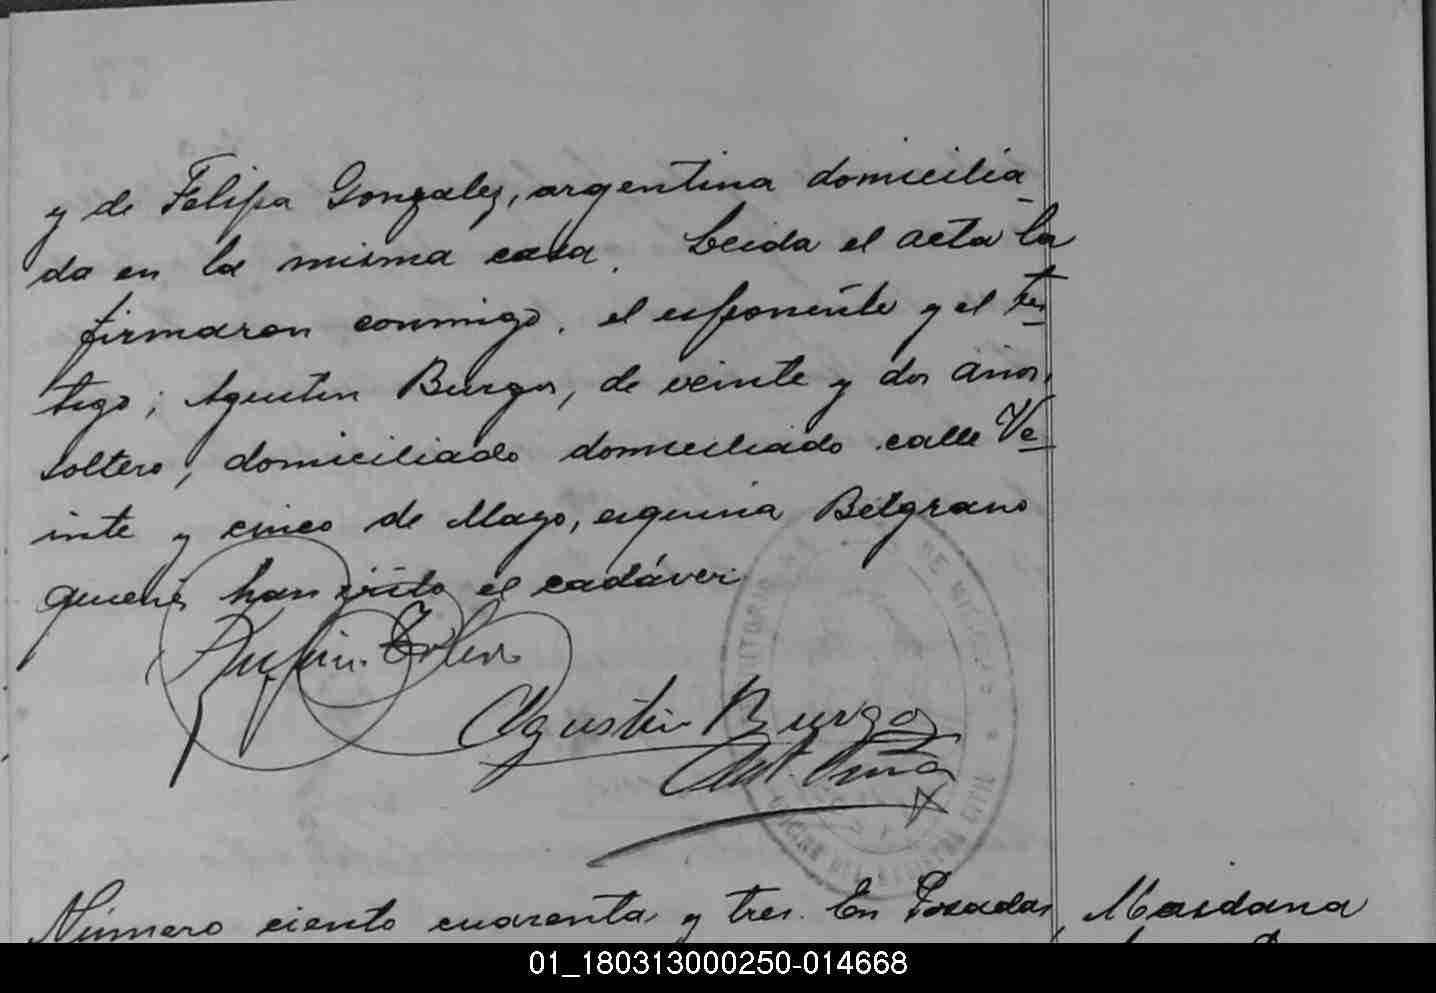 y de Felipa Gonzalez, argentina domicilia
da en la misma casa. Leida el acta la
firmaron conmigo, el esponente y el tes
tigo; Agustin Burgos, de veinte y dos años,
soltero, domiciliado domiciliado calle Ve
inte y cinco de Mayo, esquina Belgrano
quienes han visto el cadáver.
Agustin Burgos
OFICINA DEL REGISTRO CIVIL
DE MISIONES
Número ciento cuarenta y tres. En Posadas Maidana
01_180313000250-014668